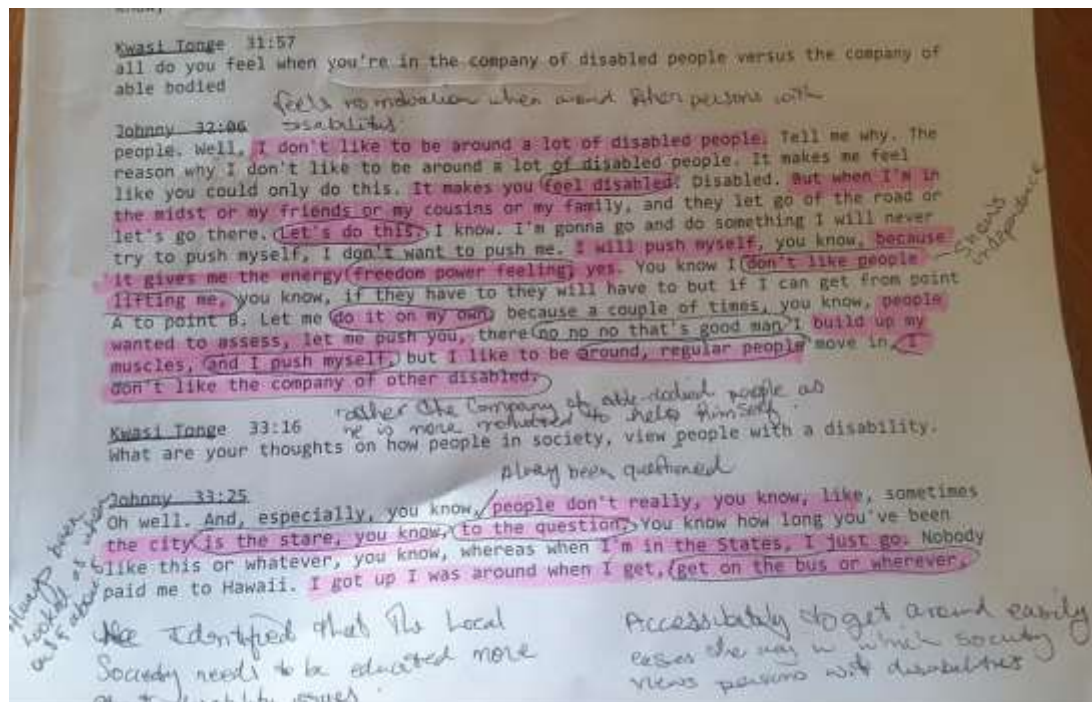 Kwasi Tonge 31:57
all do you feel when you're in the company of disabled people versus the company of
able bodied
feels no motivation when around other persons with
disabilities.
Johnny 32:06
people. Well, I don't like to be around a lot of disabled people. Tell me why. The
reason why I don't like to be around a lot of disabled people. It makes me feel
like you could only do this. It makes you feel disabled. Disabled. But when I'm in
the midst or my friends or my cousins or my family, and they let go of the road or
let's go there. Let's do this. I know. I'm gonna go and do something I will never
try to push myself, I don't want to push me. I will push myself, you know, because
it gives me the energy (freedom power feeling) yes. You know I don't like people
lifting me, you know, if they have to they will have to but if I can get from point
A to point B. Let me do it on my own, because a couple of times, you know, people
wanted to assess, let me push you, there no no no that's good man I build up my
muscles, and I push myself, but I like to be around, regular people move in, I
don't like the company of other disabled.
Shows
independence
rather the company of able-bodied people as
he is more motivated to help himself.
Kwasi Tonge 33:16
What are your thoughts on how people in society, view people with a disability.
Always been questioned
Johnny 33:25
Oh well. And, especially, you know, people don't really, you know, like, sometimes
the city is the stare, you know, to the question, You know how long you've been
like this or whatever, you know, whereas when I'm in the States, I just go. Nobody
paid me to Hawaii. I got up I was around when I get, get on the bus or wherever,
Always been
looked at when
out
Identified that the Local
Society needs to be educated more
issues.
Accessibility to get around easily
eases the way in which society
views persons with disabilities